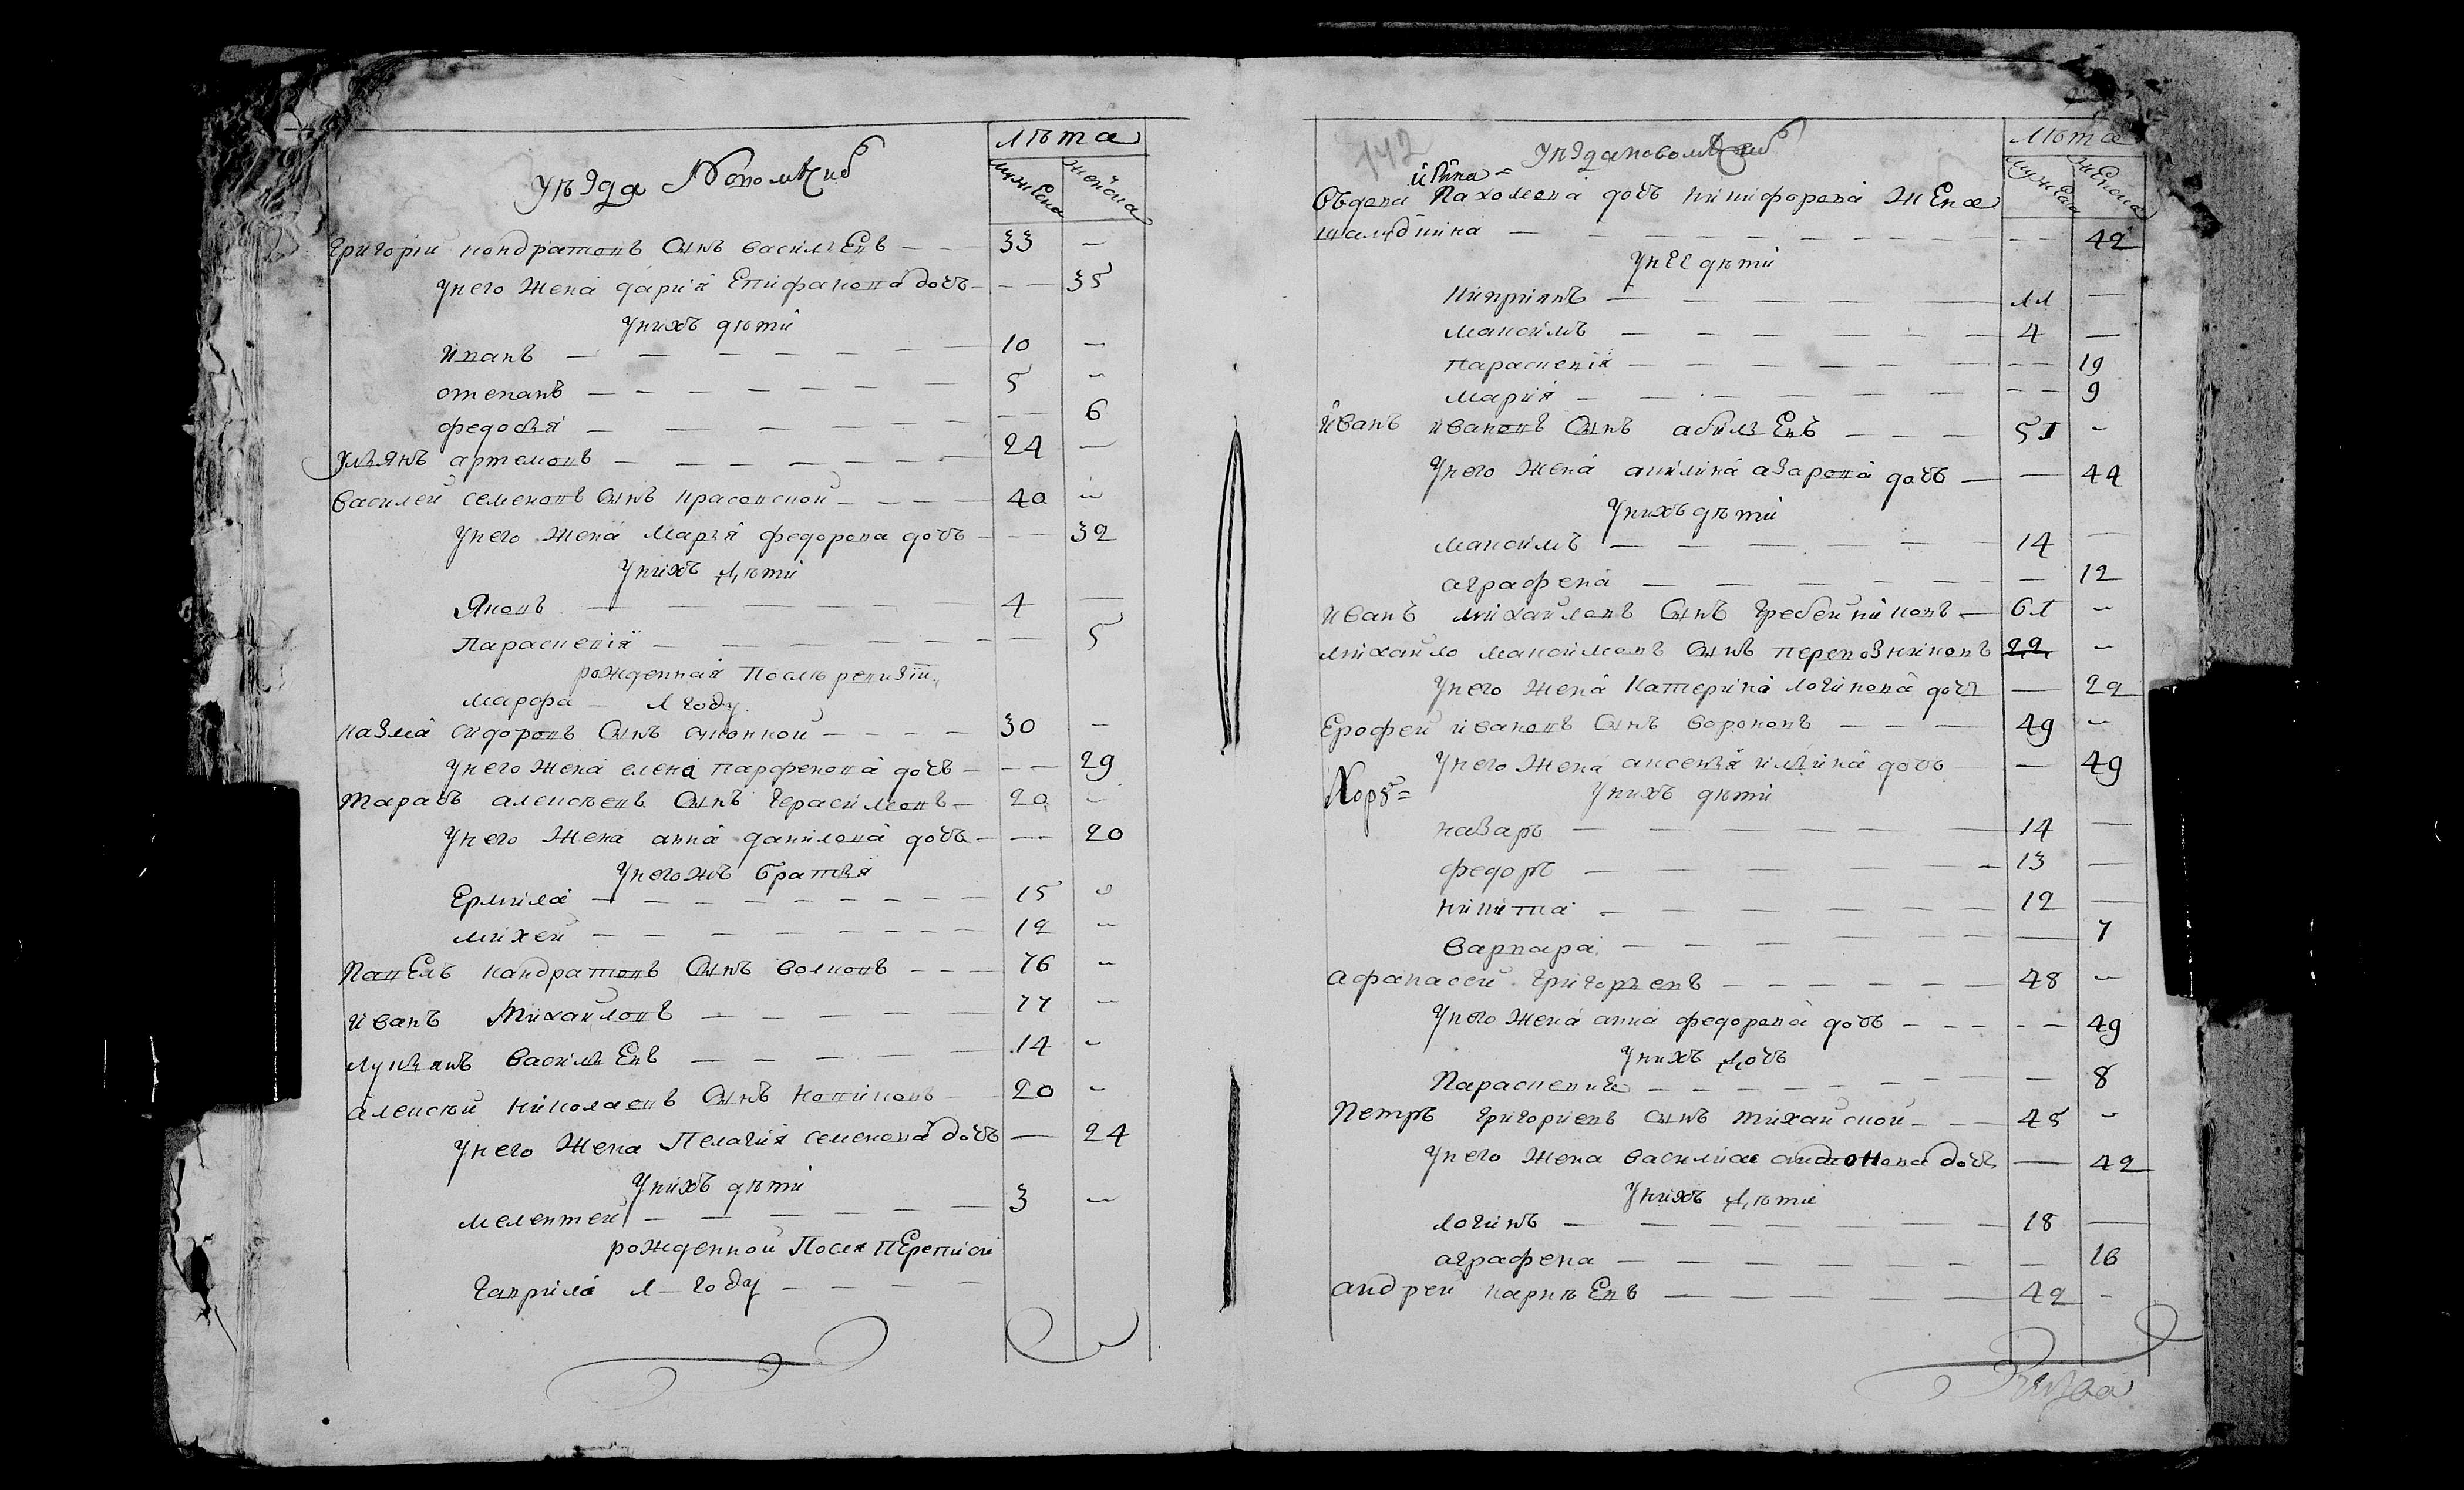 уезда
лѣта
мужеска
женска
Григории кондратовъ сынъ василъевъ — 33 —
у него жена дария Епифанова дочь — 35
у нихъ дѣти
иванъ — 10 —
степанъ — 5 —
федосъя — 6
улъянъ артемовъ — 24 —
василеи семеновъ сынъ красовскои — 40 —
у него жена маръя федорова дочь — 32
у нихъ дѣти
Яковъ — 4 —
Парасковия — 5
рожденная после ревизии
марфа — 1 году
казма сидоровъ сынъ — 30 —
у него жена елена парфенова дочь — 29
тарасъ алексѣевъ сынъ герасимовъ — 20 —
у него жена анна данилова дочь — 20
у него жъ братъя
Ермила — 15 —
михеи — 12 —
Павелъ кандратовъ сынъ волковъ — 76 —
иванъ Михаиловъ — 77 —
лукъянъ василъевъ — 14 —
алексѣи николаевъ сынъ новиковъ — 20 —
у него жена Пелагия семенова дочь — 24
у нихъ дѣти
мелентеи — 3 —
рожденнои После пЕреписи
гаврила 1 — году —
142
лѣта
мужеска
женска
вдова Пахомова дочь никифорова жена
— 42
у нее дѣти
киприянъ — 11 —
максимъ — 4 —
парасковия — 19
мария — 9
иванъ ивановъ сынъ — 51 —
у него жена акилина азарова дочь — 44
у нихъ дѣти
максимъ — 14 —
аграфена — 12
иванъ михаиловъ сынъ гребенниковъ — 61 —
михаило максимовъ сынъ перевозниковъ 22 —
у него жена катерина логинова дочь — 22
Ерофеи ивановъ сынъ вороновъ — 49 —
у него жена аксенъя илъина дочь — 49
у нихъ дѣти
назаръ — 14 —
федоръ — 13 —
никита — 12 —
варвара — 7
афанасеи григоръевъ — 48 —
у него жена анна федорова дочь — 49
у нихъ дочь
Парасковия — 8
Петръ григориевъ сынъ — 45 —
у него жена василиса дочь — 42
у нихъ дѣти
логинъ — 18 —
аграфена — 16
андреи карпъевъ — 42 —